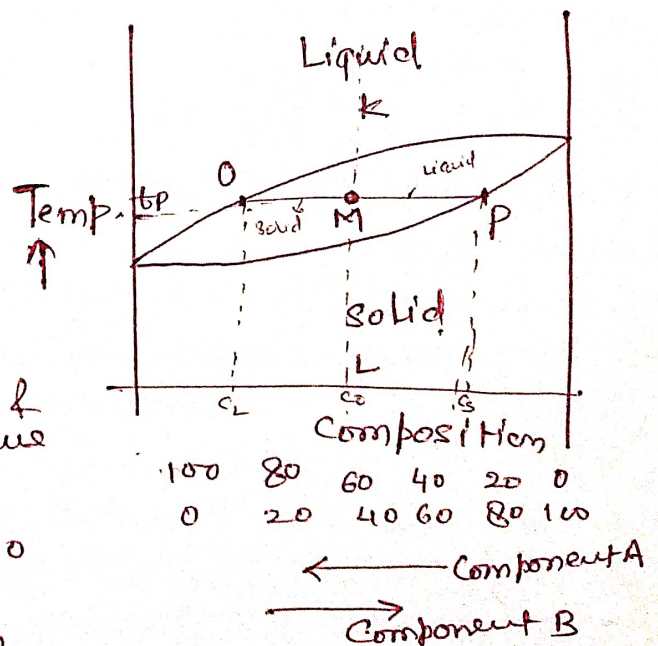 Liquid
K
O
Liquid
Temp.
tp
solid
M
P
solid
L
CL
C0
Cs
&
ue
Composition
100 80 60 40 20 0
0 20 40 60 80 100
0
Component A
Component B